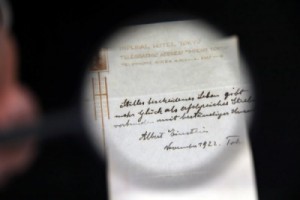 Stilles bescheidenes Leben gibt
mehr Glück als erfolgreiches Streb
verbunden mit beständiger Unru
Albert Einstein
November 1922. Tok